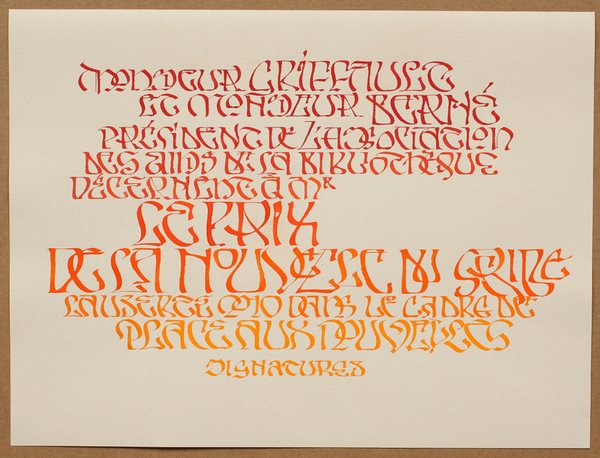 MONSIEUR GRIFFAULT
ET MONSIEUR BERNÉ
PRÉSIDENT DE L'ASSOCIATION
DES AMIS DE LA BIBLIOTHÈQUE
DÉCERNENT À MR
LE PRIX
DE LA NOUVELLE DU
LAUZERTE 2010 DANS LE CADRE DE
PLACE AUX NOUVELLES
SIGNATURES